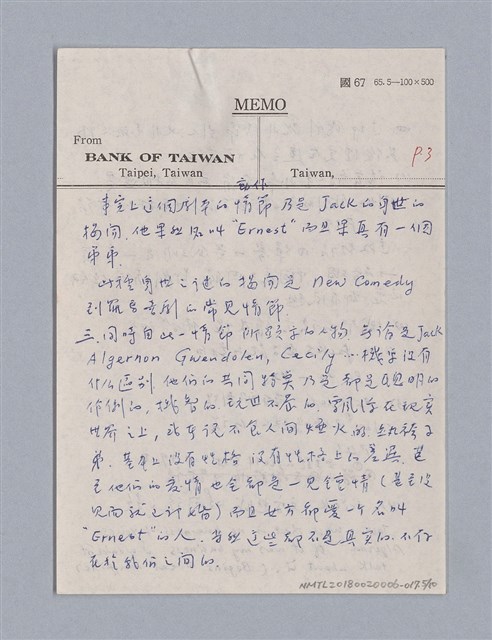 國 67 65.5—100×500
MEMO
From
BANK OF TAIWAN
Taipei, Taiwan
Taiwan,
P.3
動作
事實上這個劇本的情節乃是 Jack 的身世的
揭開. 他果然名叫 "Ernest" 而且果真有一個
弟弟.
此種身世之謎的揭開是 New Comedy
到羅馬喜劇的常見情節.
三. 同時由此一情節所發生的人物 無論是 Jack
Algernon Gwendolen, Cecily … 機乎沒有
什么區別 他們的共同特質乃是都是聰明的
伶俐的, 機智的 玩世不恭的.
世界之上, 或者说不食人間煙火的紈袴子
弟. 基本上沒有性格 沒有性格上的差異. 甚
至他們的爱情也全都是一見鍾情 (甚至沒
見面就已訂婚) 而且女方都要一个名叫
"Ernest" 的人. 当然这些都不是真實的. 不存
在於我們之間的.
NMTL20180020006-017-5/10